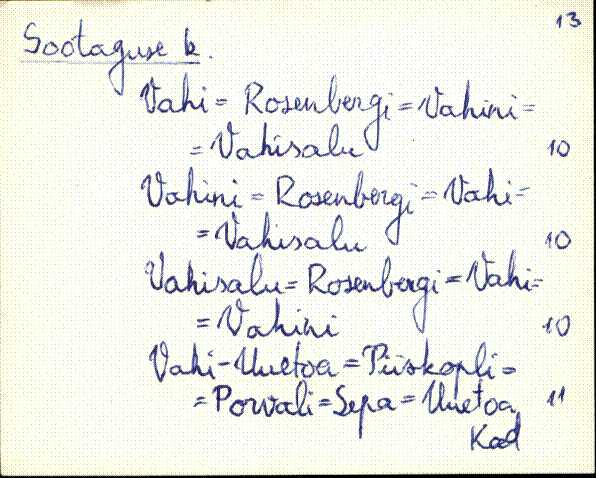 13
Sootaguse k.
Vahi = Rosenbergi = Vahini =
= Vahisalu 10
Vahini = Rosenbergi = Vahi =
= Vahisalu 10
Vahisalu = Rosenbergi = Vahi =
= Vahini 10
Vahi-Uuetoa = Piiskopli =
= Porvali = Sepa = Uuetoa 11
Kad